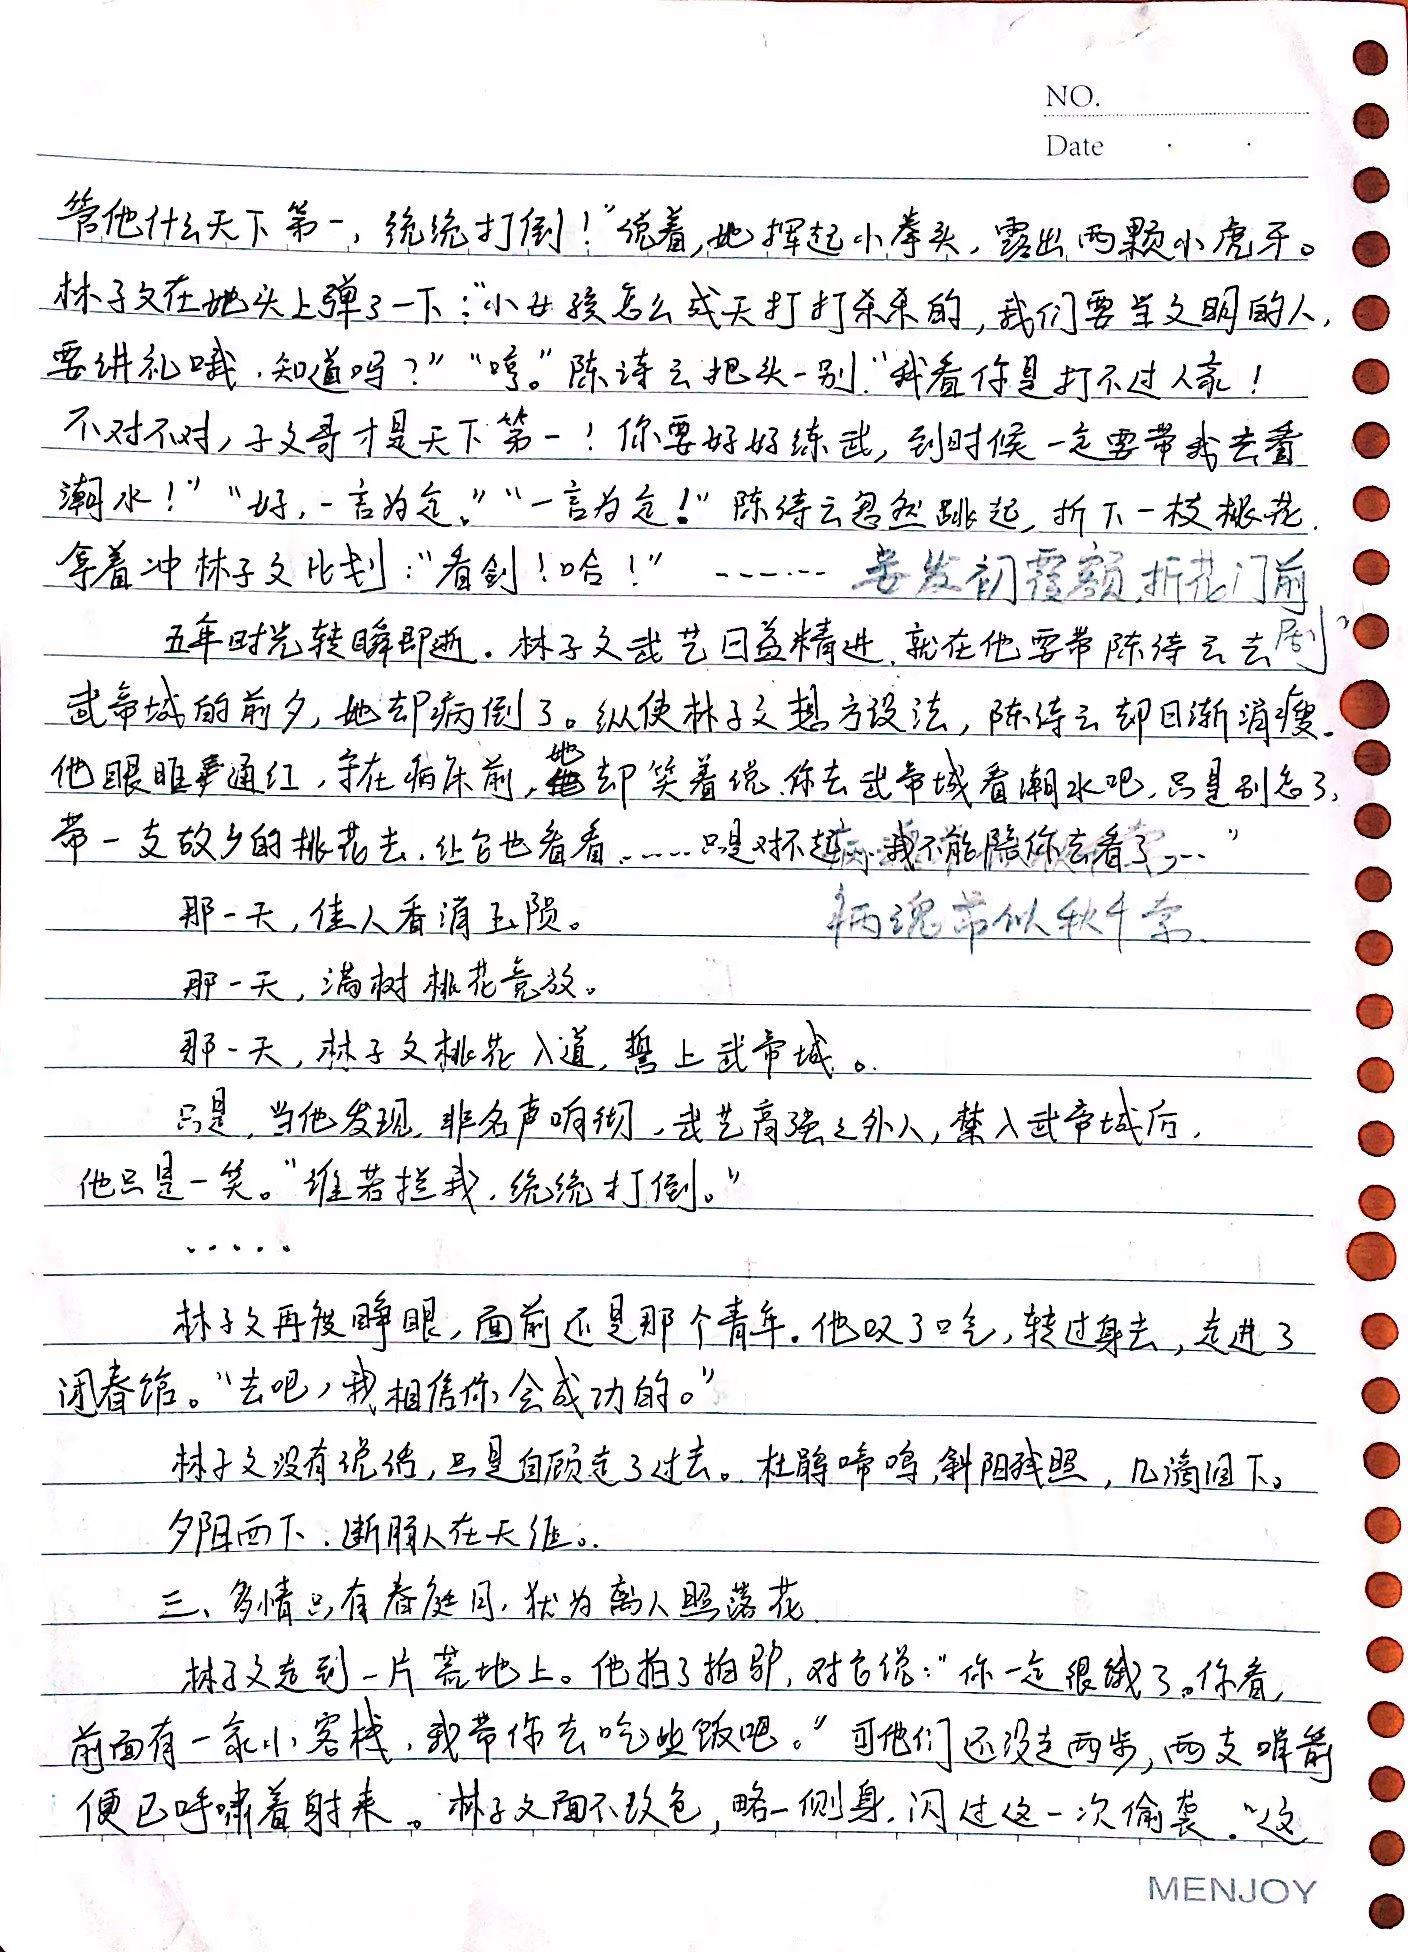 NO.
Date
管他什么天下第一，统统打倒！”说着，她挥起小拳头，露出两颗小虎牙。
林子文在她头上弹了一下：“小女孩怎么成天打打杀杀的，我们要当文明的人，
要讲礼哦，知道吗？”“哼。”陈诗云把头一别，“我看你是打不过人家！
不对不对，子文哥才是天下第一！你要好好练武，到时候一定要带我去看
潮水！”“好，一言为定。”“一言为定！”陈诗云忽然跳起，折下一枝桃花，
拿着冲林子文比划：“看剑！哈！” ------ 妾发初覆额，折花门前
剧”
五年时光转瞬即逝。林子文武艺日益精进，就在他要带陈诗云去
武帝城的前夕，她却病倒了。纵使林子文想方设法，陈诗云却日渐消瘦。
他眼眶通红，守在病床前，她却笑着说：你去武帝城看潮水吧，只是别忘了，
带一支故乡的桃花去，让它也看看……只是对不起…我不能陪你去看了……”
那一天，佳人香消玉陨。
病魂常似秋千索。
那一天，满树桃花竞放。
那一天，林子文桃花入道，誓上武帝城。
只是，当他发现，非名声响彻，武艺高强之外人，禁入武帝城后，
他只是一笑。“谁若拦我，统统打倒。”
.....
林子文再度睁眼，面前还是那个青年。他叹了口气，转过身去，走进了
闭春馆。“去吧，我相信你会成功的。”
林子文没有说话，只是自顾走了过去。杜鹃啼鸣，斜阳残照，几滴泪下。
夕阳西下，断肠人在天涯。
三、多情只有春庭月，犹为离人照落花
林子文走到一片荒地上。他拍了拍驴，对它说：“你一定很饿了。你看，
前面有一家小客栈，我带你去吃些饭吧。”可他们还没走两步，两支哨箭
便已呼啸着射来。林子文面不改色，略一侧身，闪过这一次偷袭。“这
MENJOY